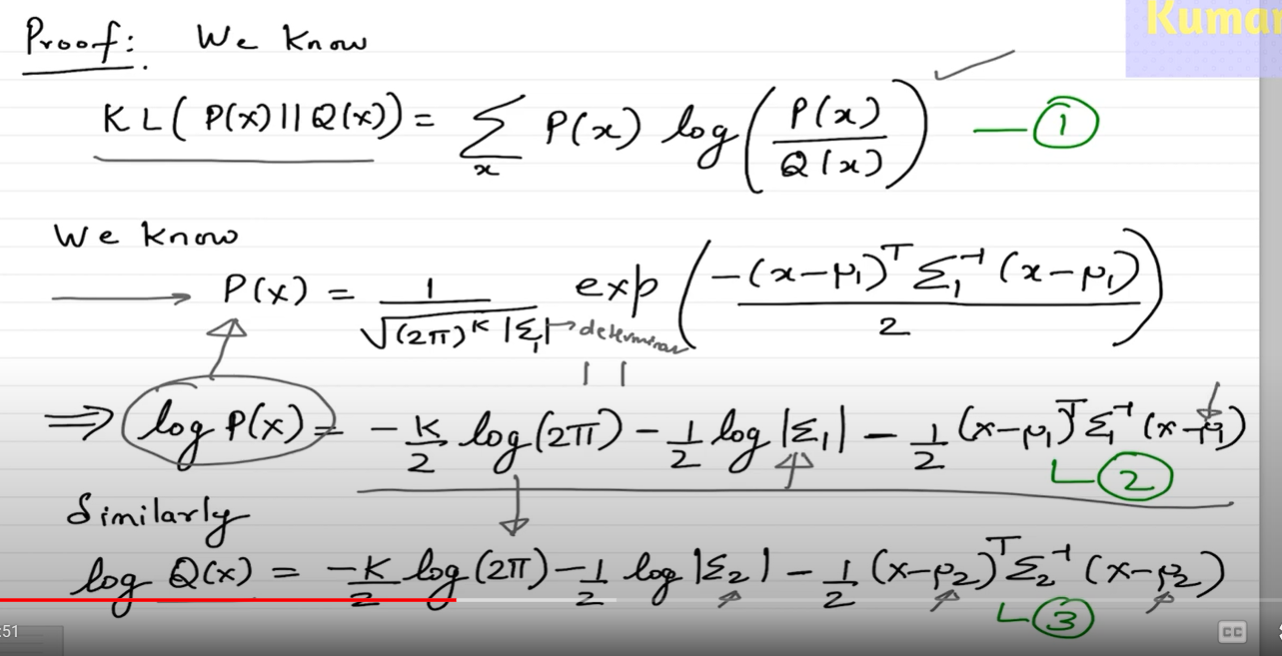 Proof: We Know
Kumar
KL( P(x) || Q(x)) = Σ_x P(x) log( P(x) / Q(x) ) — ①
We know
P(x) = 1 / √((2π)^K |Σ₁|) exp( -(x-μ₁)ᵀ Σ₁⁻¹ (x-μ₁) / 2 )
⇒ log P(x) = - K/2 log(2π) - 1/2 log |Σ₁| - 1/2 (x-μ₁)ᵀ Σ₁⁻¹ (x-μ₁)
②
Similarly
log Q(x) = - K/2 log(2π) - 1/2 log |Σ₂| - 1/2 (x-μ₂)ᵀ Σ₂⁻¹ (x-μ₂)
③
:51
CC